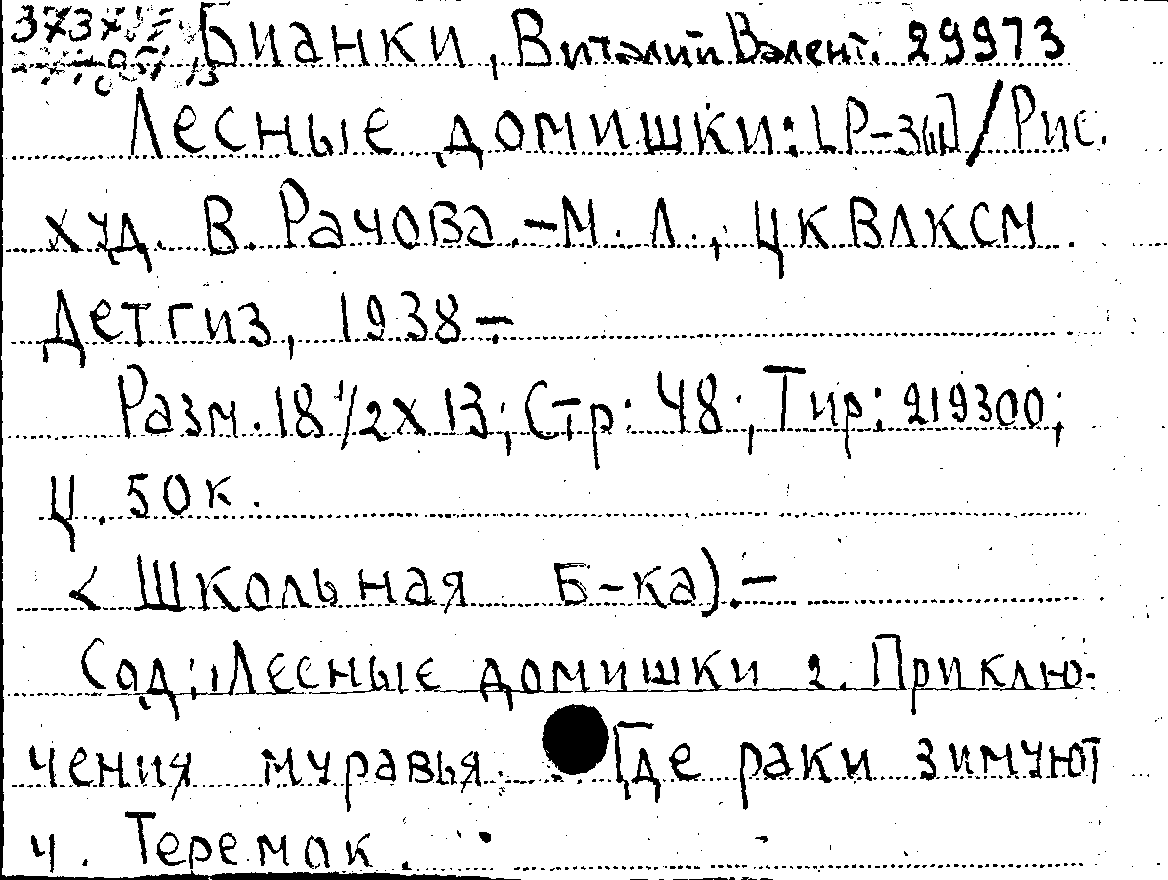 Бианки, Виталий Валент. 29973
Лесные домишки: [Р-зы] / Рис.
худ. В. Рачова. - М. Л., ЦК ВЛКСМ.
Детгиз, 1938 -.
Разм. 18 1/2 х 13; Стр: 48; Тир: 219300;
Ц. 50 к.
< Школьная Б-ка). -
Сод: 1 Лесные домишки 2. Приклю-
чения муравья. Где раки зимуют
4. Теремок.